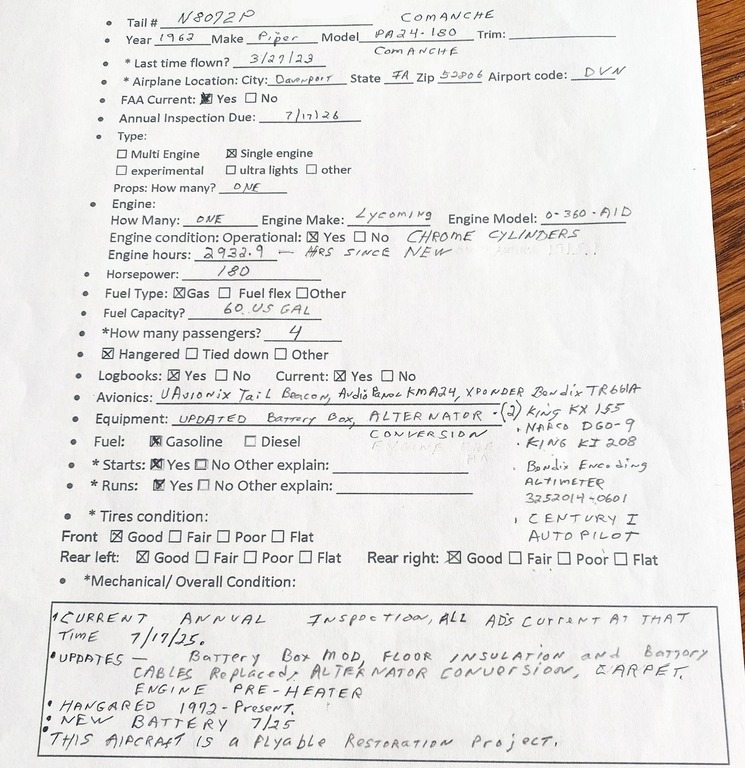 COMANCHE
• Tail # N8072P
• Year 1962 Make Piper Model PA24-180 Trim:
COMANCHE
• * Last time flown? 3/27/23
• * Airplane Location: City: Davenport State IA Zip 52806 Airport code: DVN
• FAA Current: ☒ Yes ☐ No
• Annual Inspection Due: 7/17/26
• Type:
☐ Multi Engine ☒ Single engine
☐ experimental ☐ ultra lights ☐ other
Props: How many? ONE
• Engine:
How Many: ONE Engine Make: Lycoming Engine Model: O-360-A1D
Engine condition: Operational: ☒ Yes ☐ No CHROME CYLINDERS
Engine hours: 2932.9 — HRS SINCE NEW
• Horsepower: 180
• Fuel Type: ☒Gas ☐ Fuel flex ☐Other
• Fuel Capacity? 60 US GAL
• *How many passengers? 4
• ☒ Hangered ☐ Tied down ☐ Other
• Logbooks: ☒ Yes ☐ No Current: ☒ Yes ☐ No
• Avionics: UAvionix Tail Beacon, Audio Panel KMA24, XPONDER Bendix TR661A
• Equipment: UPDATED Battery Box, ALTERNATOR • (2) KING KX 155
CONVERSION
• NARCO DGO-9
• Fuel: ☒ Gasoline ☐ Diesel
• KING KI 208
• * Starts: ☒ Yes ☐ No Other explain:
• Bendix Encoding
ALTIMETER
• * Runs: ☒ Yes ☐ No Other explain:
3252014-0601
• * Tires condition:
• CENTURY I
AUTO PILOT
Front ☒ Good ☐ Fair ☐ Poor ☐ Flat
Rear left: ☒ Good ☐ Fair ☐ Poor ☐ Flat Rear right: ☒ Good ☐ Fair ☐ Poor ☐ Flat
• *Mechanical/ Overall Condition:
• CURRENT ANNUAL INSPECTION, ALL AD'S CURRENT AT THAT
TIME 7/17/25.
• UPDATES — Battery Box MOD, FLOOR INSULATION and Battery
CABLES Replaced, ALTERNATOR CONVERSION, CARPET.
ENGINE PRE-HEATER
• HANGARED 1972-Present.
• NEW BATTERY 7/25
• THIS AIRCRAFT IS a Flyable Restoration Project.